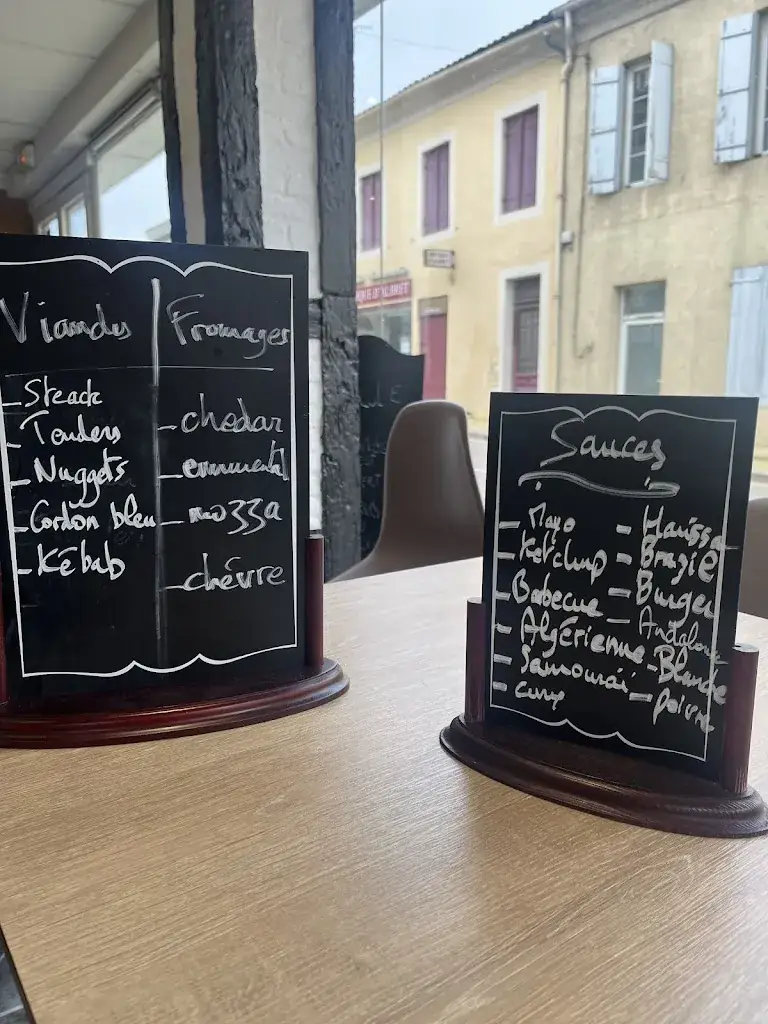 Viandes
Fromages
- Steack
- Tenders
- Nuggets
- Cordon bleu
- Kébab
- chedar
- emmental
- mozza
- chévre
Sauces
- Mayo
- Ketchup
- Babecue
- Algérienne
- Samourai
- curry
- Harissa
- Brazil
- Burger
- Andalouse
- Blanche
- poivre